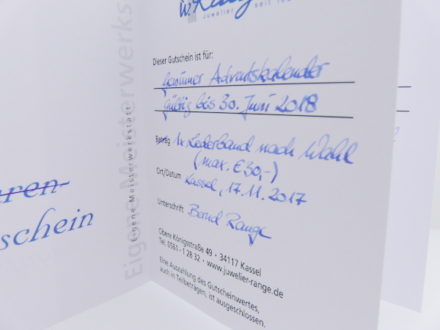 juwelier · seit
Dieser Gutschein ist für:
Gewinner Adventskalender
gültig bis 30. Juni 2018
Betrag 1x Lederband nach Wahl
(max. € 30,-)
Ort/Datum Kassel, 17.11.2017
Unterschrift Bernd Range
Obere Königsstraße 49 · 34117 Kassel
Tel. 0561-1 28 32 · www.juwelier-range.de
Eine Auszahlung des Gutscheinwertes,
auch in Teilbeträgen, ist ausgeschlossen.
Eigene Meisterwerkstatt
Eigene Meisterwerks
ren-
schein